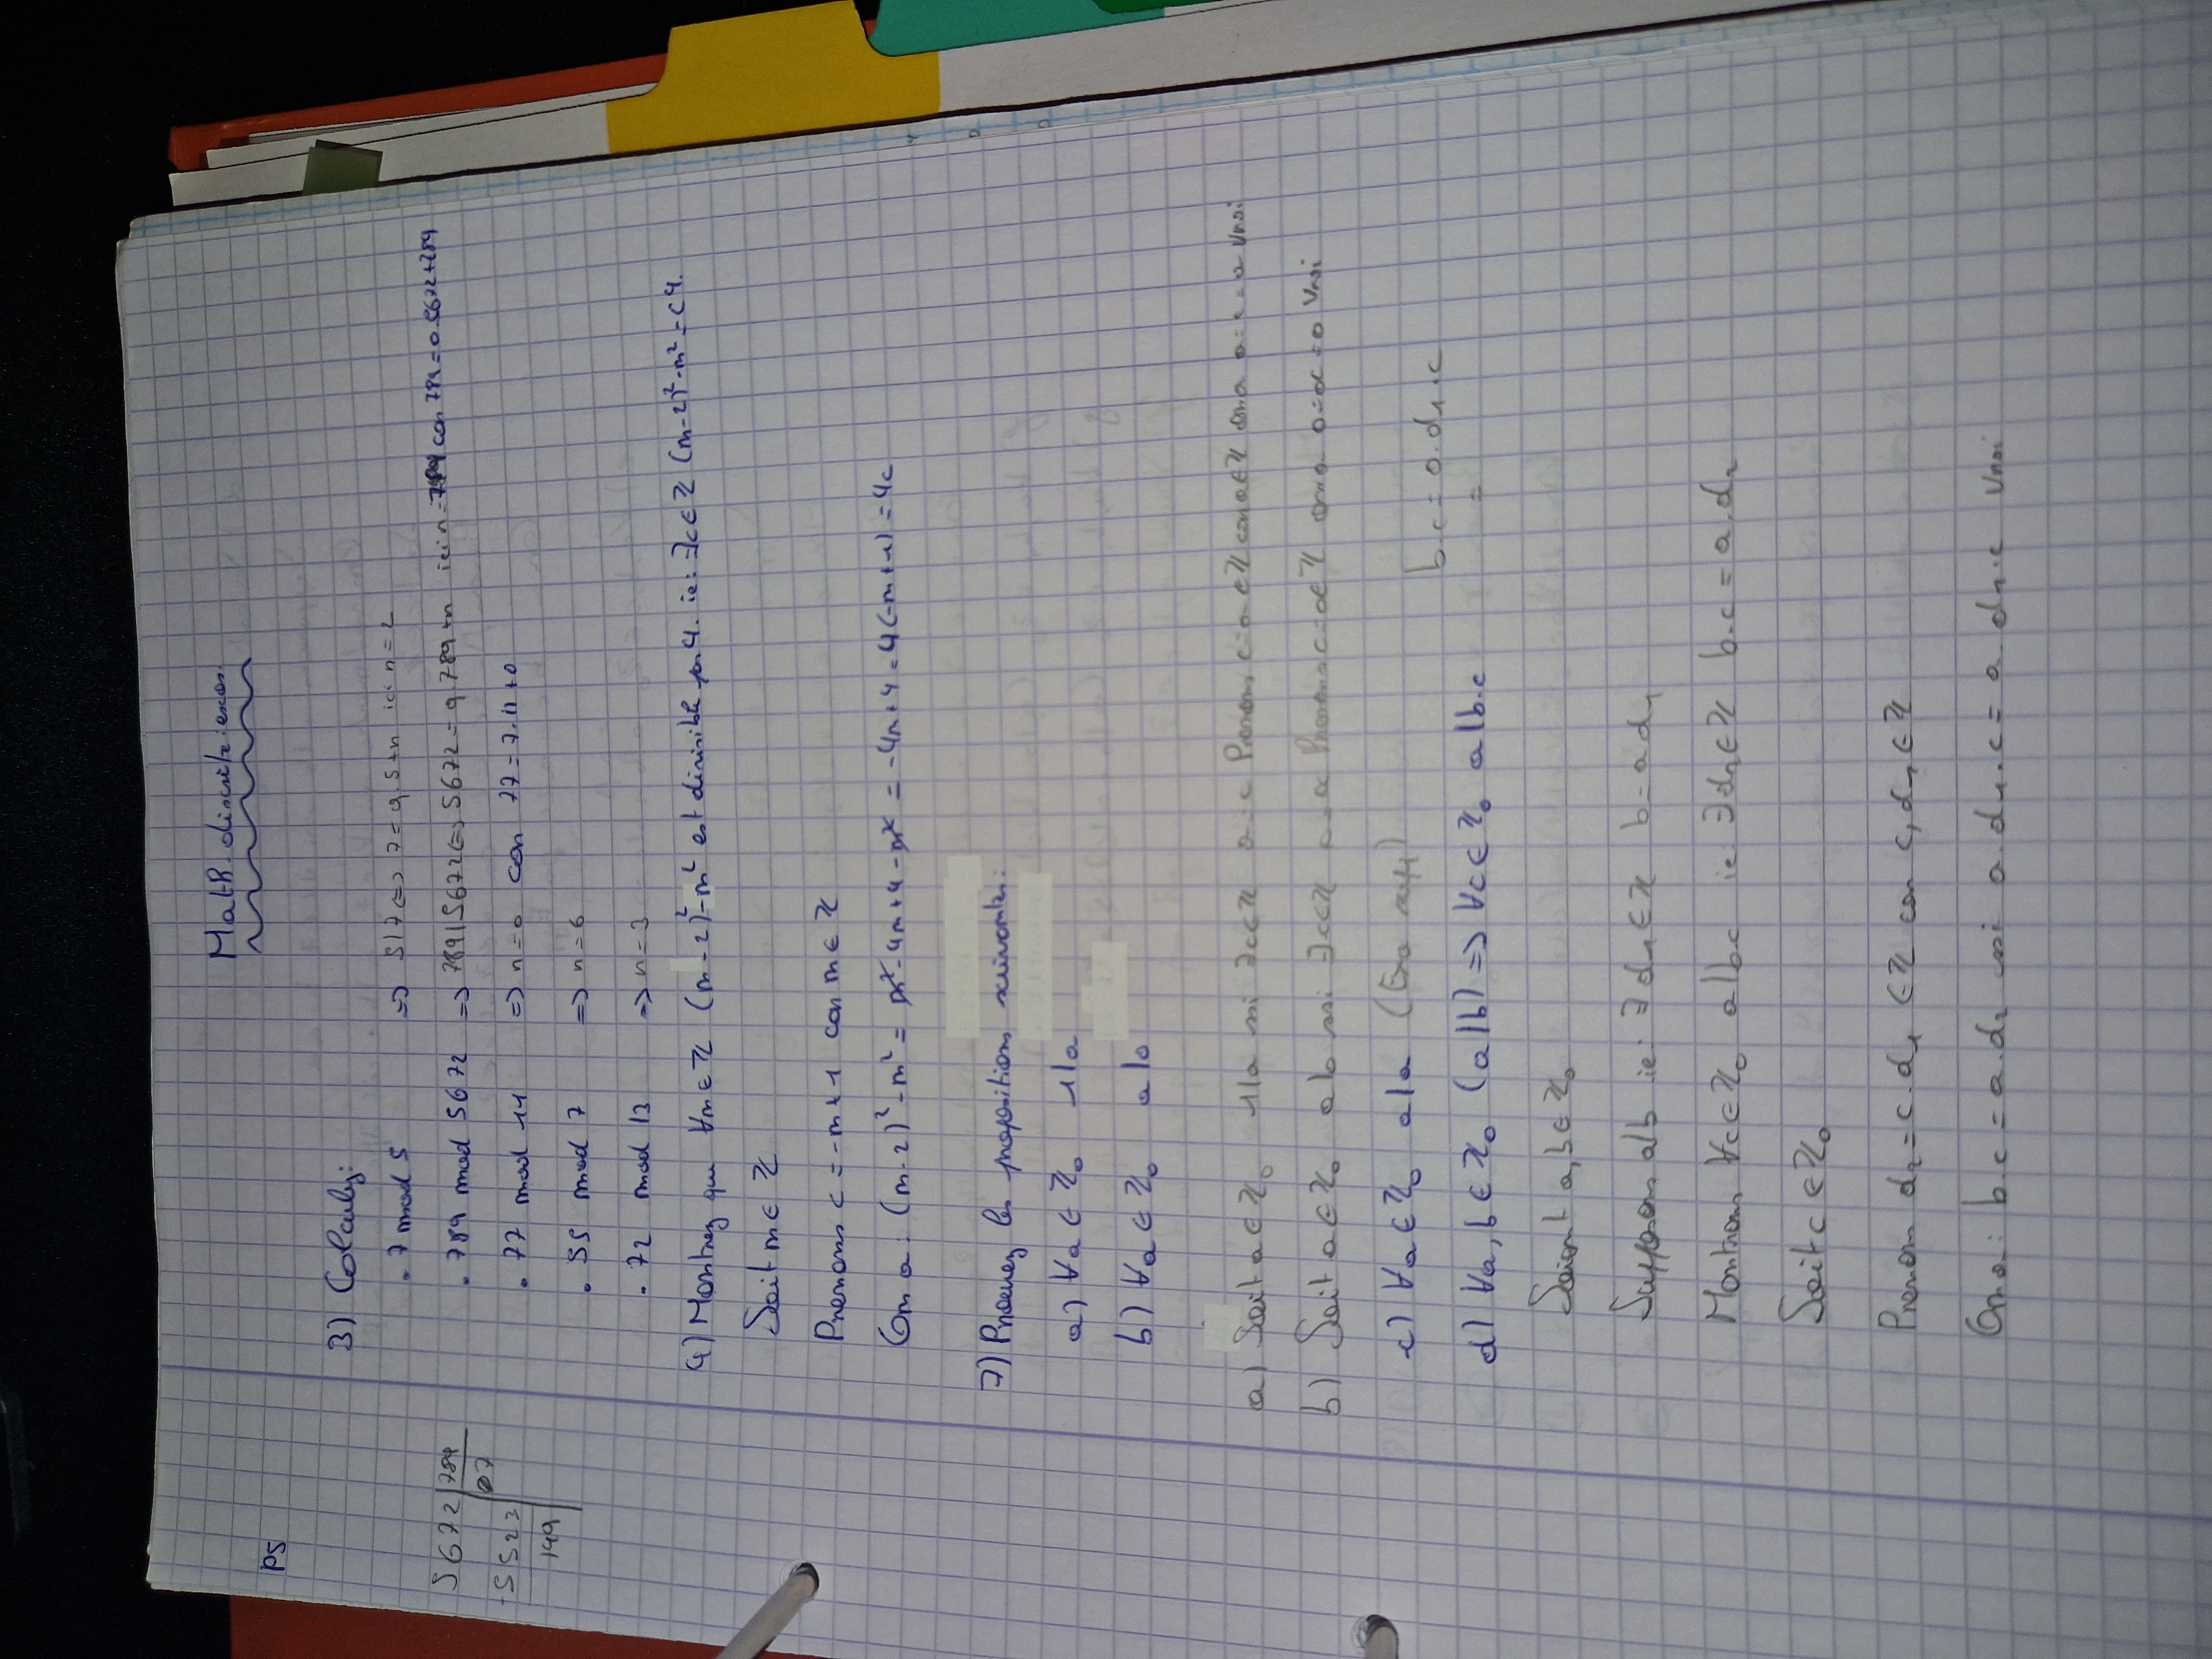 Math discrète: exos.
P5
3) Calculez:
. 7 mod 5 => 5|7 <=> 7 = q.5+r ici r=2
. 789 mod 5672 => 789|5672 <=> 5672 = q.789+r ici r=789 car 789=0.5672+789
5672 | 789
07
-5523
149
. 77 mod 11 => r=0 car 77=7.11+0
. 55 mod 7 => r=6
. 72 mod 13 => r=3
4) Montrez que ∀m∈ℤ (m-2)²-m² est divisible par 4. ie: ∃c∈ℤ (m-2)²-m²=c4.
Soit m∈ℤ
Prenons c=-m+1 car m∈ℤ
On a: (m-2)²-m² = m²-4m+4-m² = -4m+4 = 4(-m+1) = 4c
7) Prouvez les propositions suivantes:
a) ∀a∈ℤ₀ 1|a
b) ∀a∈ℤ₀ a|0
a) Soit a∈ℤ₀ 1|a ssi ∃c∈ℤ a=c Prenons c=a∈ℤ car a∈ℤ on a a=c=a Vrai
b) Soit a∈ℤ₀ a|0 ssi ∃c∈ℤ Prenons c=0∈ℤ on a 0=ac=0 Vrai
c) ∀a∈ℤ₀ a|a (Exo
b.c = a.d₁.c
=
d) ∀a,b∈ℤ₀ (a|b) => ∀c∈ℤ₀ a|b.c
Soient a,b∈ℤ₀
Supposons a|b ie: ∃d₁∈ℤ b=a.d₁
Montrons ∀c∈ℤ₀ a|b.c ie: ∃d₂∈ℤ b.c=a.d₂
Soit c∈ℤ₀
Prenons d₂=c.d₁ ∈ℤ car c,d₁∈ℤ
On a: b.c=a.d₂ ssi a.d₁.c=a.d₁.c Vrai